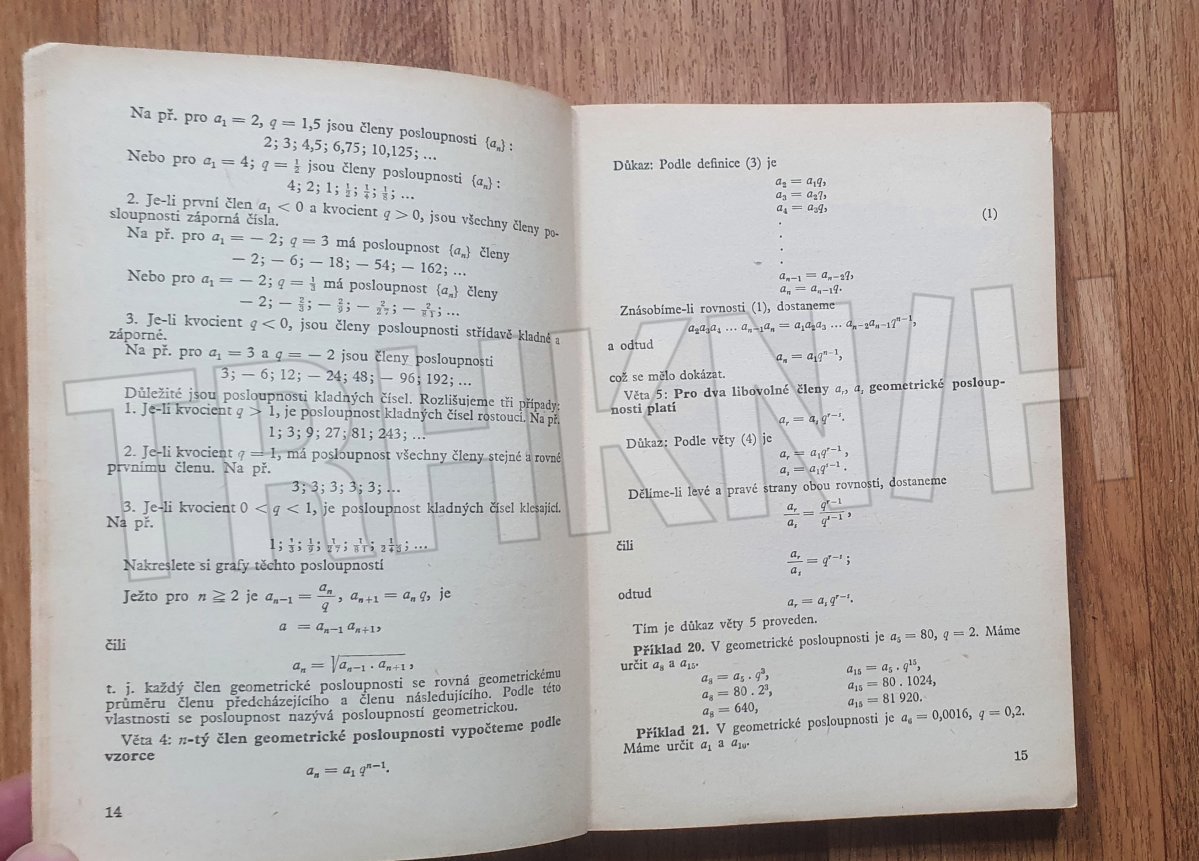 Na př. pro a₁ = 2, q = 1,5 jsou členy posloupnosti {aₙ}:
2; 3; 4,5; 6,75; 10,125; ...
Nebo pro a₁ = 4; q = ½ jsou členy posloupnosti {aₙ}:
4; 2; 1; ½; ¼; ⅛; ...
2. Je-li první člen a₁ < 0 a kvocient q > 0, jsou všechny členy po-
sloupnosti záporná čísla.
Na př. pro a₁ = — 2; q = 3 má posloupnost {aₙ} členy
— 2; — 6; — 18; — 54; — 162; ...
Nebo pro a₁ = — 2; q = ⅓ má posloupnost {aₙ} členy
— 2; — 2/3; — 2/9; — 2/27; — 2/81; ...
3. Je-li kvocient q < 0, jsou členy posloupnosti střídavě kladné a
záporné.
Na př. pro a₁ = 3 a q = — 2 jsou členy posloupnosti
3; — 6; 12; — 24; 48; — 96; 192; ...
Důležité jsou posloupnosti kladných čísel. Rozlišujeme tři případy:
1. Je-li kvocient q > 1, je posloupnost kladných čísel rostoucí. Na př.
1; 3; 9; 27; 81; 243; ...
2. Je-li kvocient q = 1, má posloupnost všechny členy stejné a rovné
prvnímu členu. Na př.
3; 3; 3; 3; 3; ...
3. Je-li kvocient 0 < q < 1, je posloupnost kladných čísel klesající.
Na př.
1; 1/3; 1/9; 1/27; 1/81; 1/243; ...
Nakreslete si grafy těchto posloupností
Ježto pro n ≧ 2 je aₙ₋₁ = aₙ/q, aₙ₊₁ = aₙ q, je
a = aₙ₋₁ aₙ₊₁,
čili
aₙ = √(aₙ₋₁ . aₙ₊₁),
t. j. každý člen geometrické posloupnosti se rovná geometrickému
průměru členu předcházejícího a členu následujícího. Podle této
vlastnosti se posloupnost nazývá posloupností geometrickou.
Věta 4: n-tý člen geometrické posloupnosti vypočteme podle
vzorce
aₙ = a₁ qⁿ⁻¹.
14
Důkaz: Podle definice (3) je
a₂ = a₁q,
a₃ = a₂q,
a₄ = a₃q, (1)
.
.
.
.
aₙ₋₁ = aₙ₋₂q,
aₙ = aₙ₋₁q.
Znásobíme-li rovnosti (1), dostaneme
a₂a₃a₄ ... aₙ₋₁aₙ = a₁a₂a₃ ... aₙ₋₂aₙ₋₁qⁿ⁻¹,
a odtud
aₙ = a₁qⁿ⁻¹,
což se mělo dokázat.
Věta 5: Pro dva libovolné členy aᵣ, aₛ geometrické posloup-
nosti platí
aᵣ = aₛ qʳ⁻ˢ.
Důkaz: Podle věty (4) je
aᵣ = a₁qʳ⁻¹,
aₛ = a₁qˢ⁻¹.
Dělíme-li levé a pravé strany obou rovností, dostaneme
aᵣ/aₛ = qʳ⁻¹/qˢ⁻¹,
čili
aᵣ/aₛ = qʳ⁻ˢ;
odtud
aᵣ = aₛ qʳ⁻ˢ.
Tím je důkaz věty 5 proveden.
Příklad 20. V geometrické posloupnosti je a₅ = 80, q = 2. Máme
určit a₈ a a₁₅.
a₈ = a₅ . q³, a₁₅ = a₅ . q¹⁵,
a₈ = 80 . 2³, a₁₅ = 80 . 1024,
a₈ = 640, a₁₅ = 81 920.
Příklad 21. V geometrické posloupnosti je a₆ = 0,0016, q = 0,2.
Máme určit a₁ a a₁₀.
15
TRHKNIH